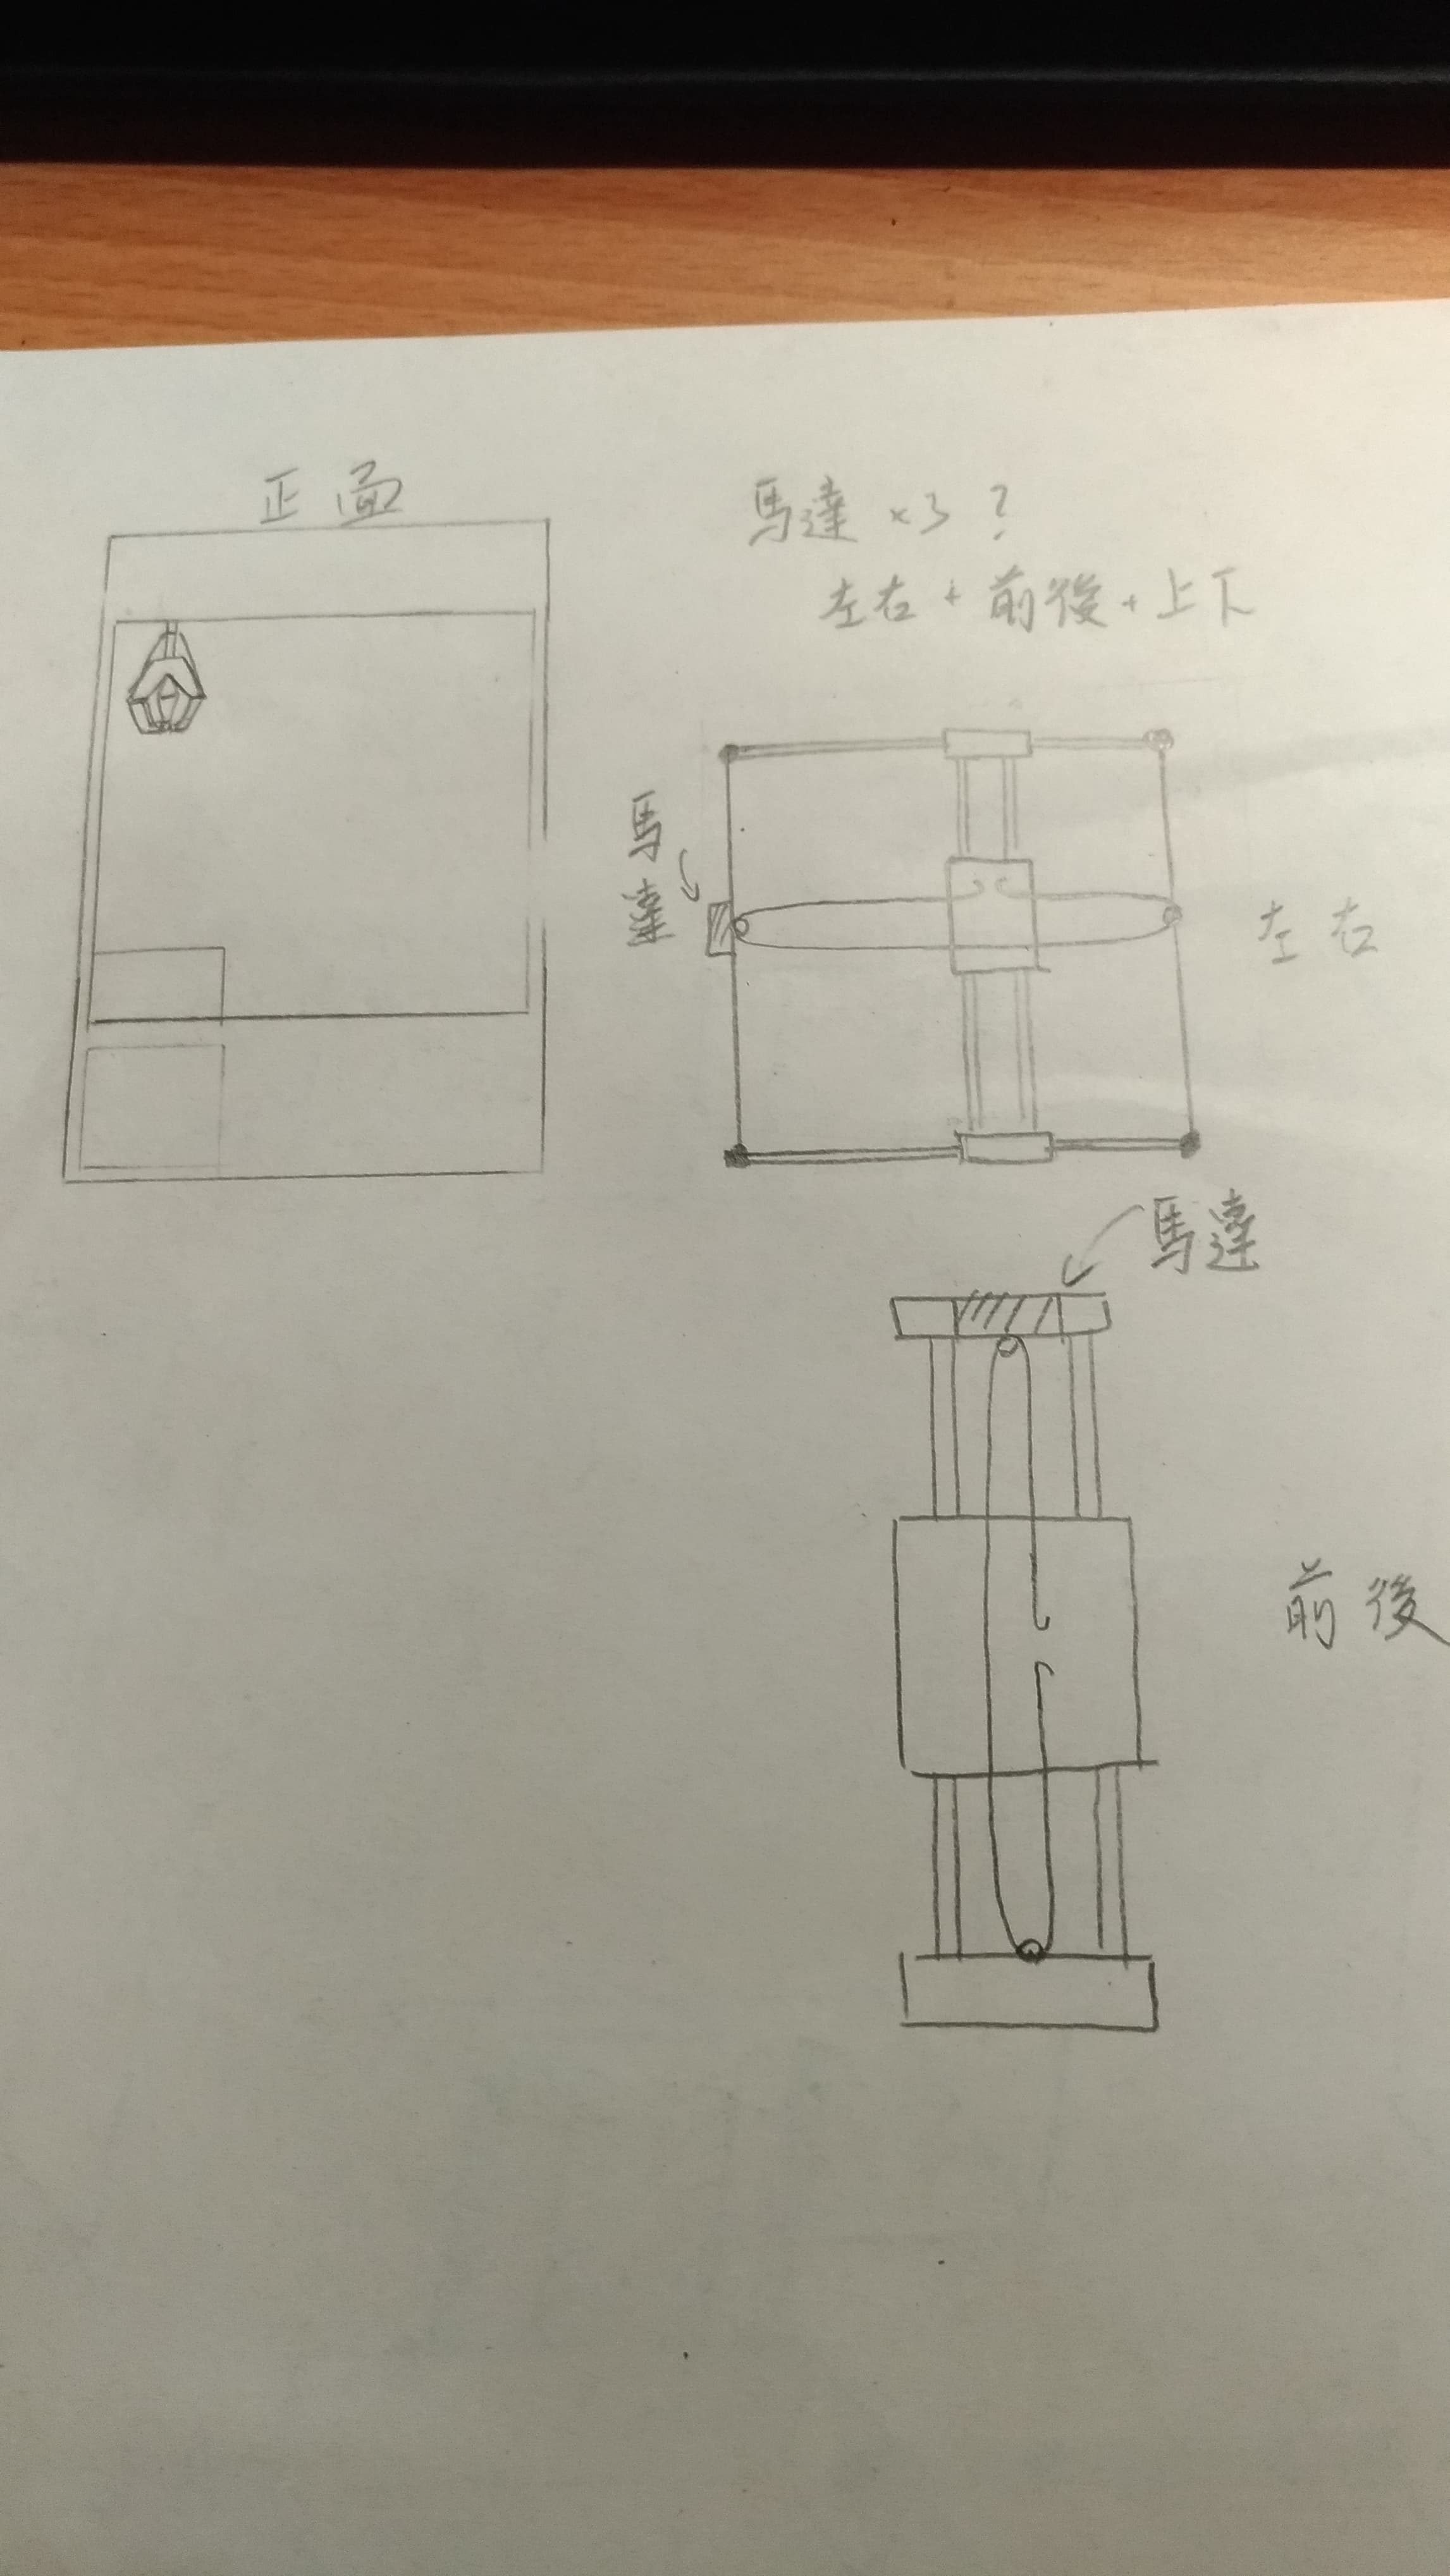 正面
馬達 ×3?
左右+前後+上下
馬達
左右
馬達
前後